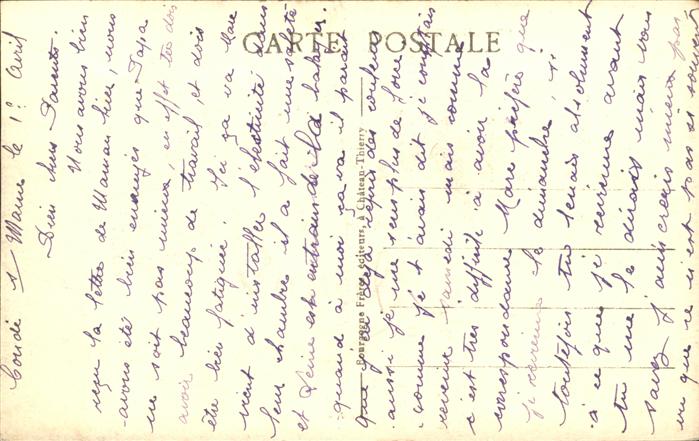 CARTE POSTALE
Bourgogne Frères, éditeurs, à Château-Thierry
Condé s/ Marne le 1° Avril
Bien chers Parents
Nous avons bien
reçu la lettre de Maman hier, nous
avons été bien ennuyés que Papa
ne soit pas mieux, en effet tu dois
avoir beaucoup de travail, et dois
être bien fatiguée. Ici ça va Marc
vient d'installer l'électricité dans
leur chambre il a fait une saleté
et Reine est entrain de balayer.
quand à moi ça va il parait
que j'ai déjà repris des couleurs
aussi je me sens plus de force
comme je t'avais dit je comptais
revenir samedi mais comme
c'est très difficile à avoir la
correspondance Marc préfère que
je revienne le dimanche, si
toutefois tu tenais absolument
à ce que je revienne avant
tu me le dirais mais vous
savez j'aime mieux pas
vu que ce n'est pas si souvent